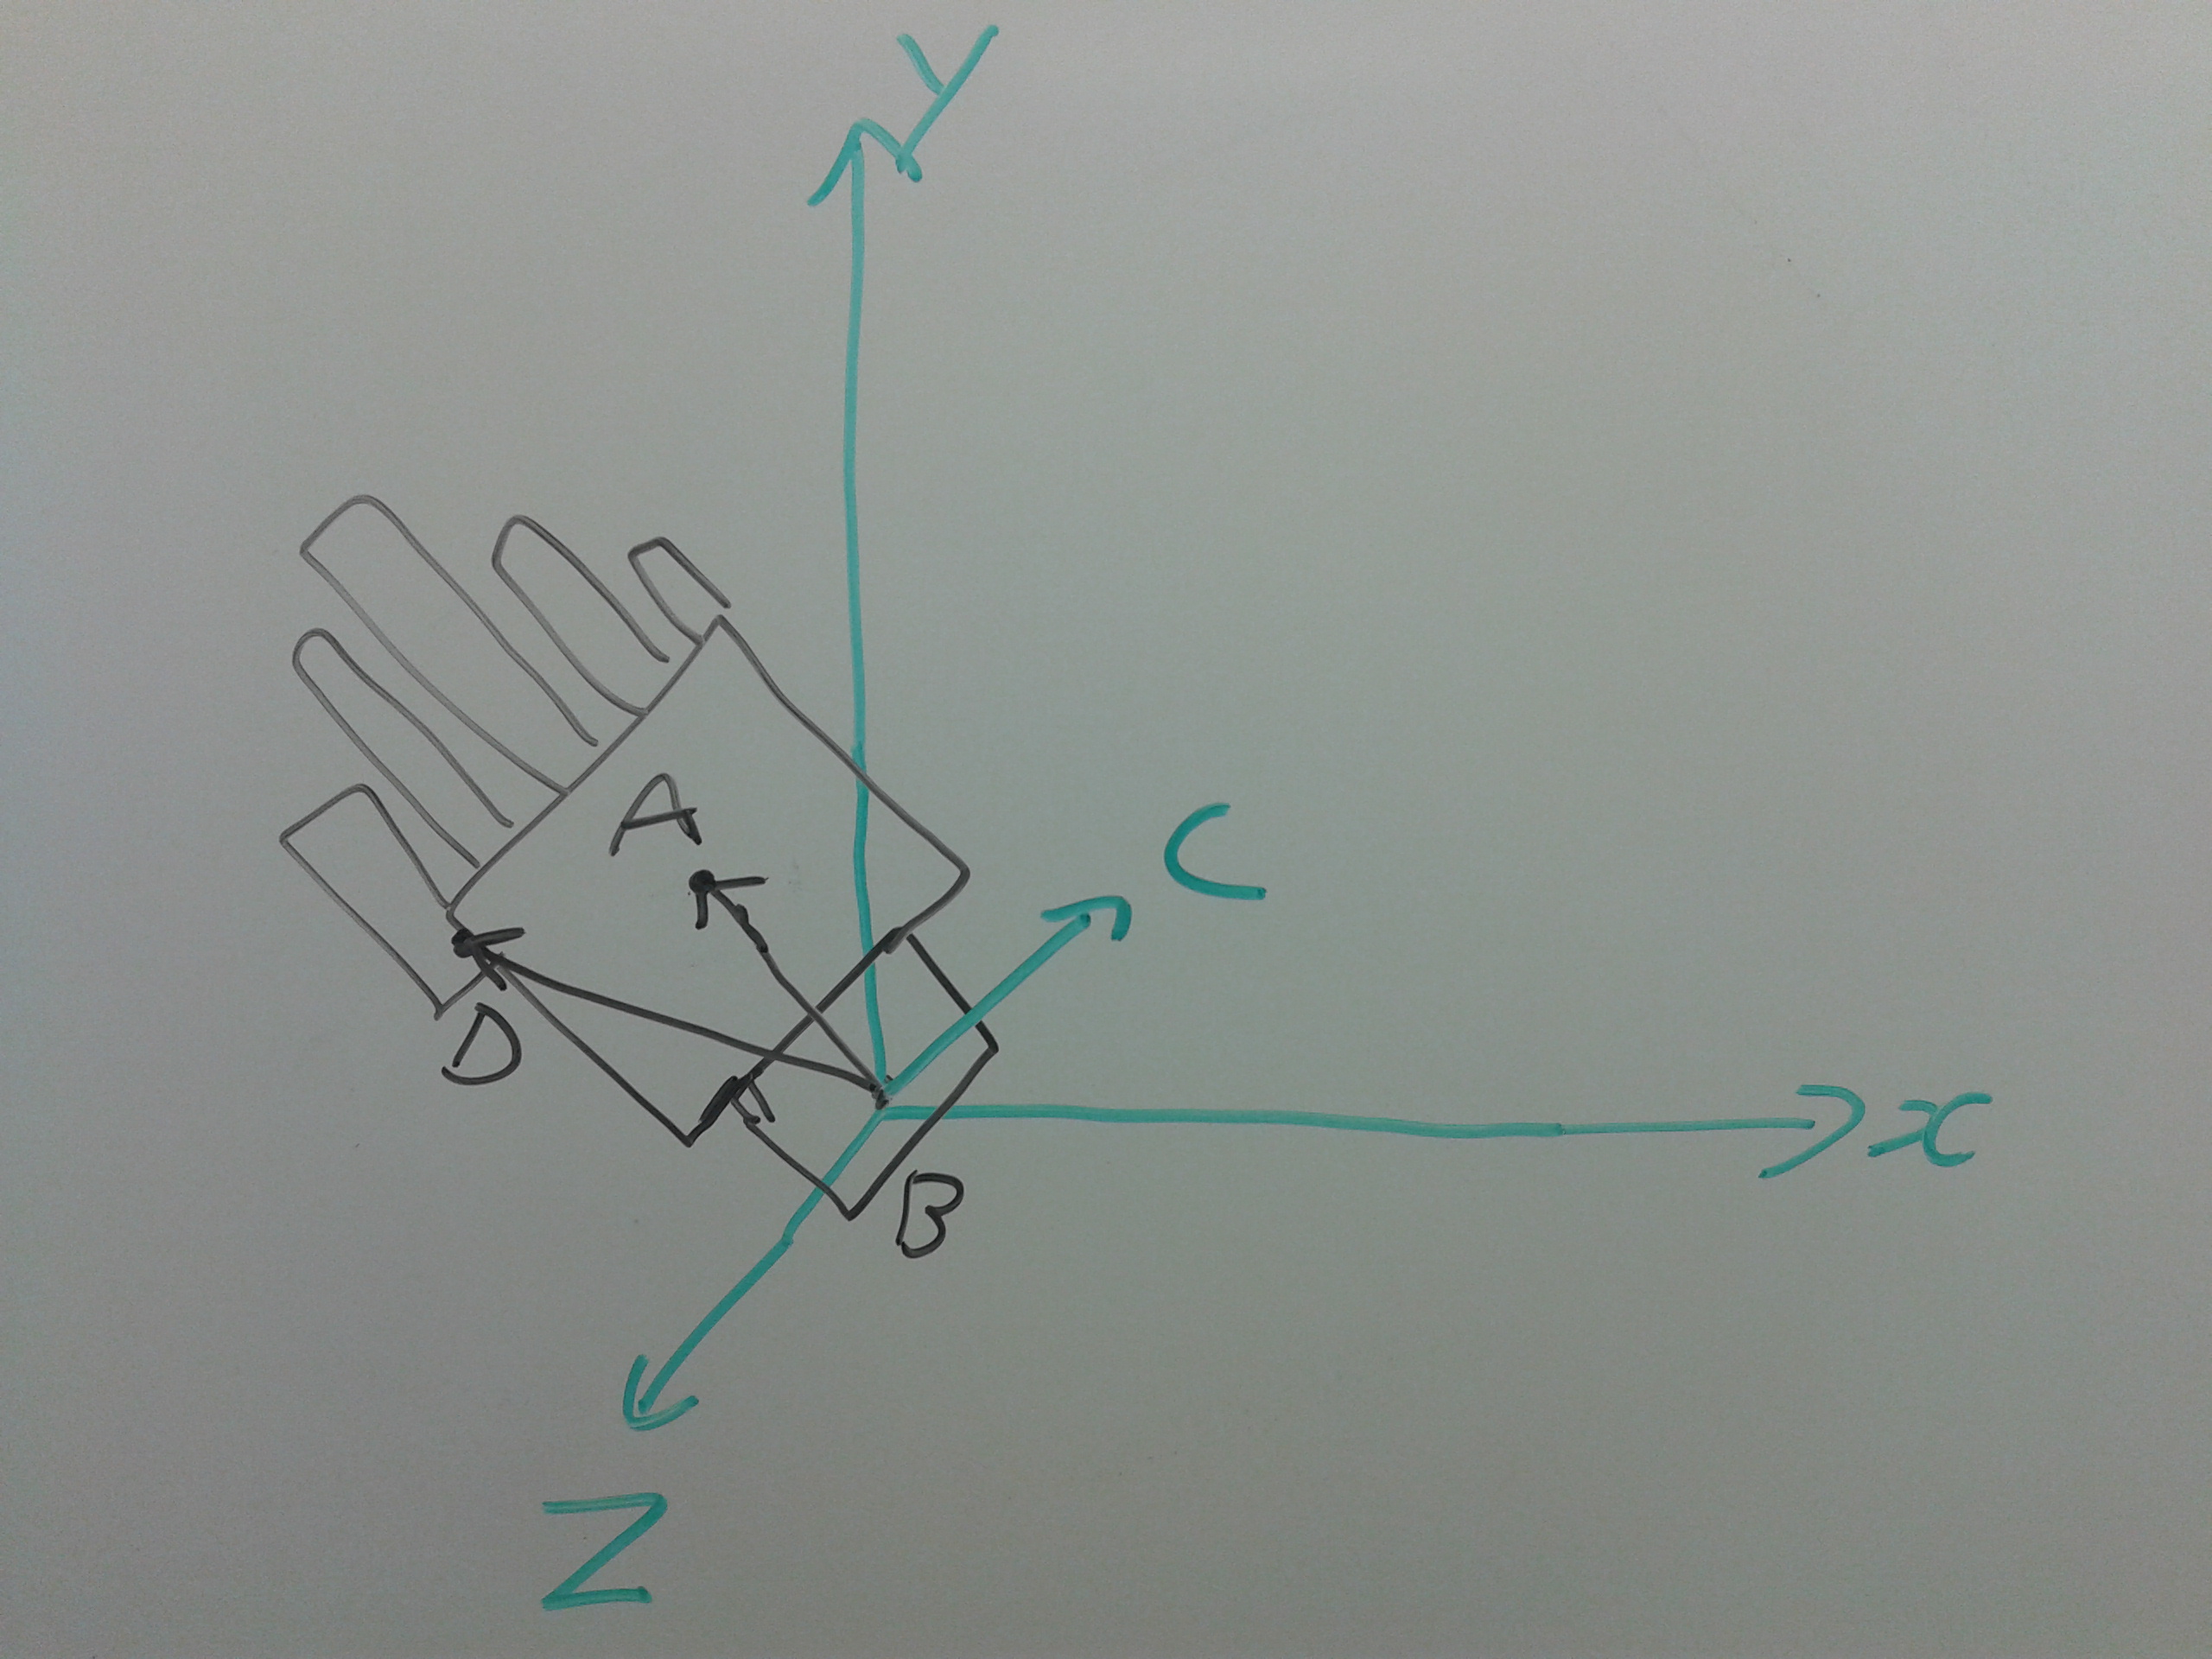 Y
A
C
D
x
B
Z